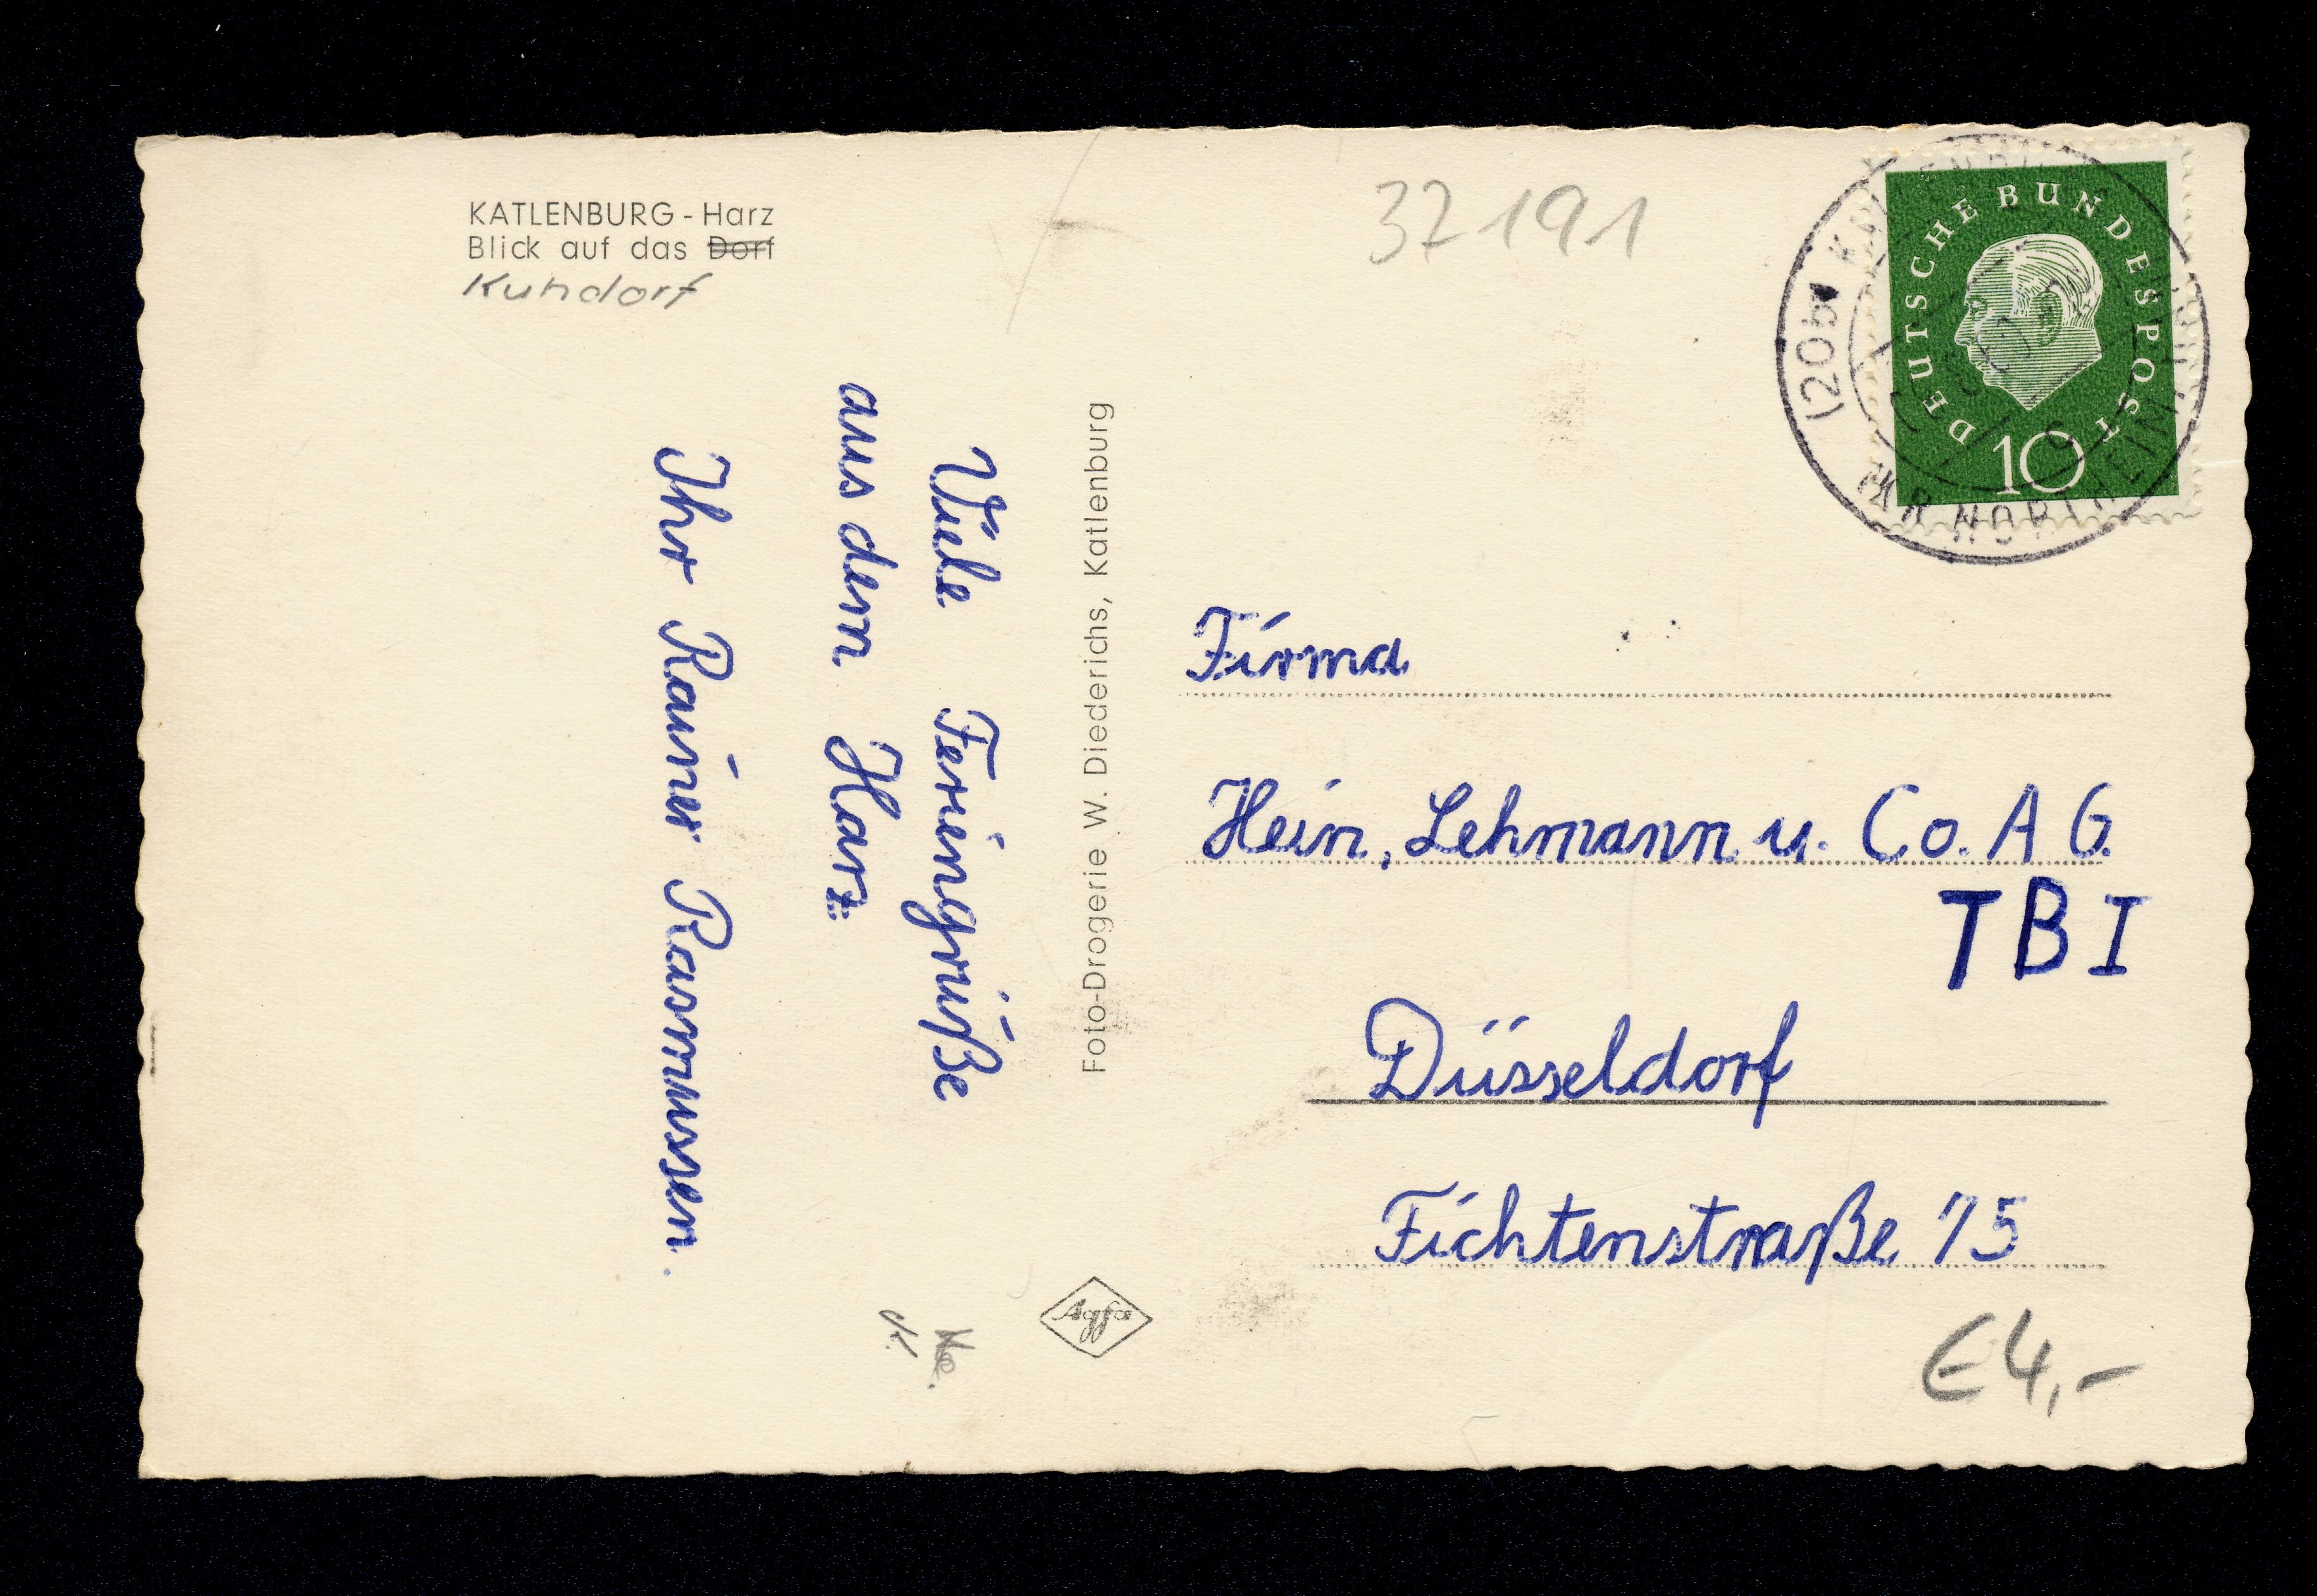 KATLENBURG - Harz
Blick auf das Dorf
Kuhdorf
Viele Feriengrüße
aus dem Harz
Ihr Rainer Rasmussen.
Foto-Drogerie W. Diederichs, Katlenburg
Agfa
32191
DEUTSCHE BUNDESPOST
10
(20b)
KR NORTHEIM
Firma
Hein, Lehmann u. Co. A G.
TBI
Düsseldorf
Fichtenstraße 75
€4,-